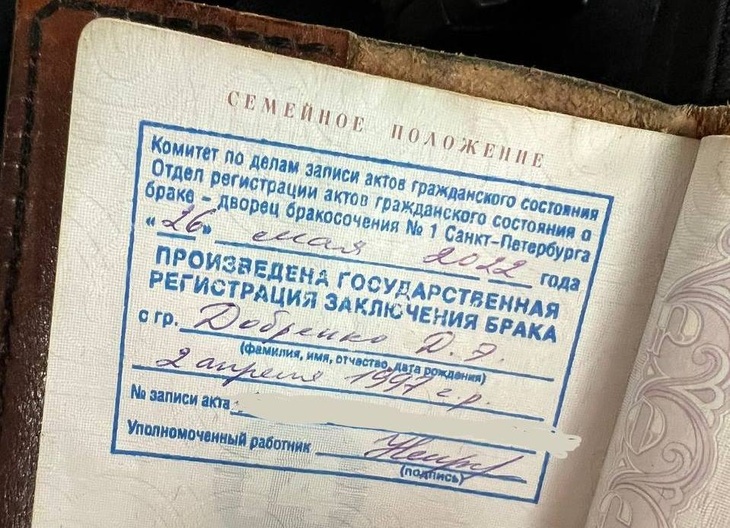 СЕМЕЙНОЕ ПОЛОЖЕНИЕ
Комитет по делам записи актов гражданского состояния
Отдел регистрации актов гражданского состояния о
браке - дворец бракосочения № 1 Санкт-Петербурга
«26» мая 2022 года
ПРОИЗВЕДЕНА ГОСУДАРСТВЕННАЯ
РЕГИСТРАЦИЯ ЗАКЛЮЧЕНИЯ БРАКА
с гр. Добренко Д. Э.
(фамилия, имя, отчество, дата рождения)
2 апреля 1997 г.р.
№ записи акта:
Уполномоченный работник
(подпись)